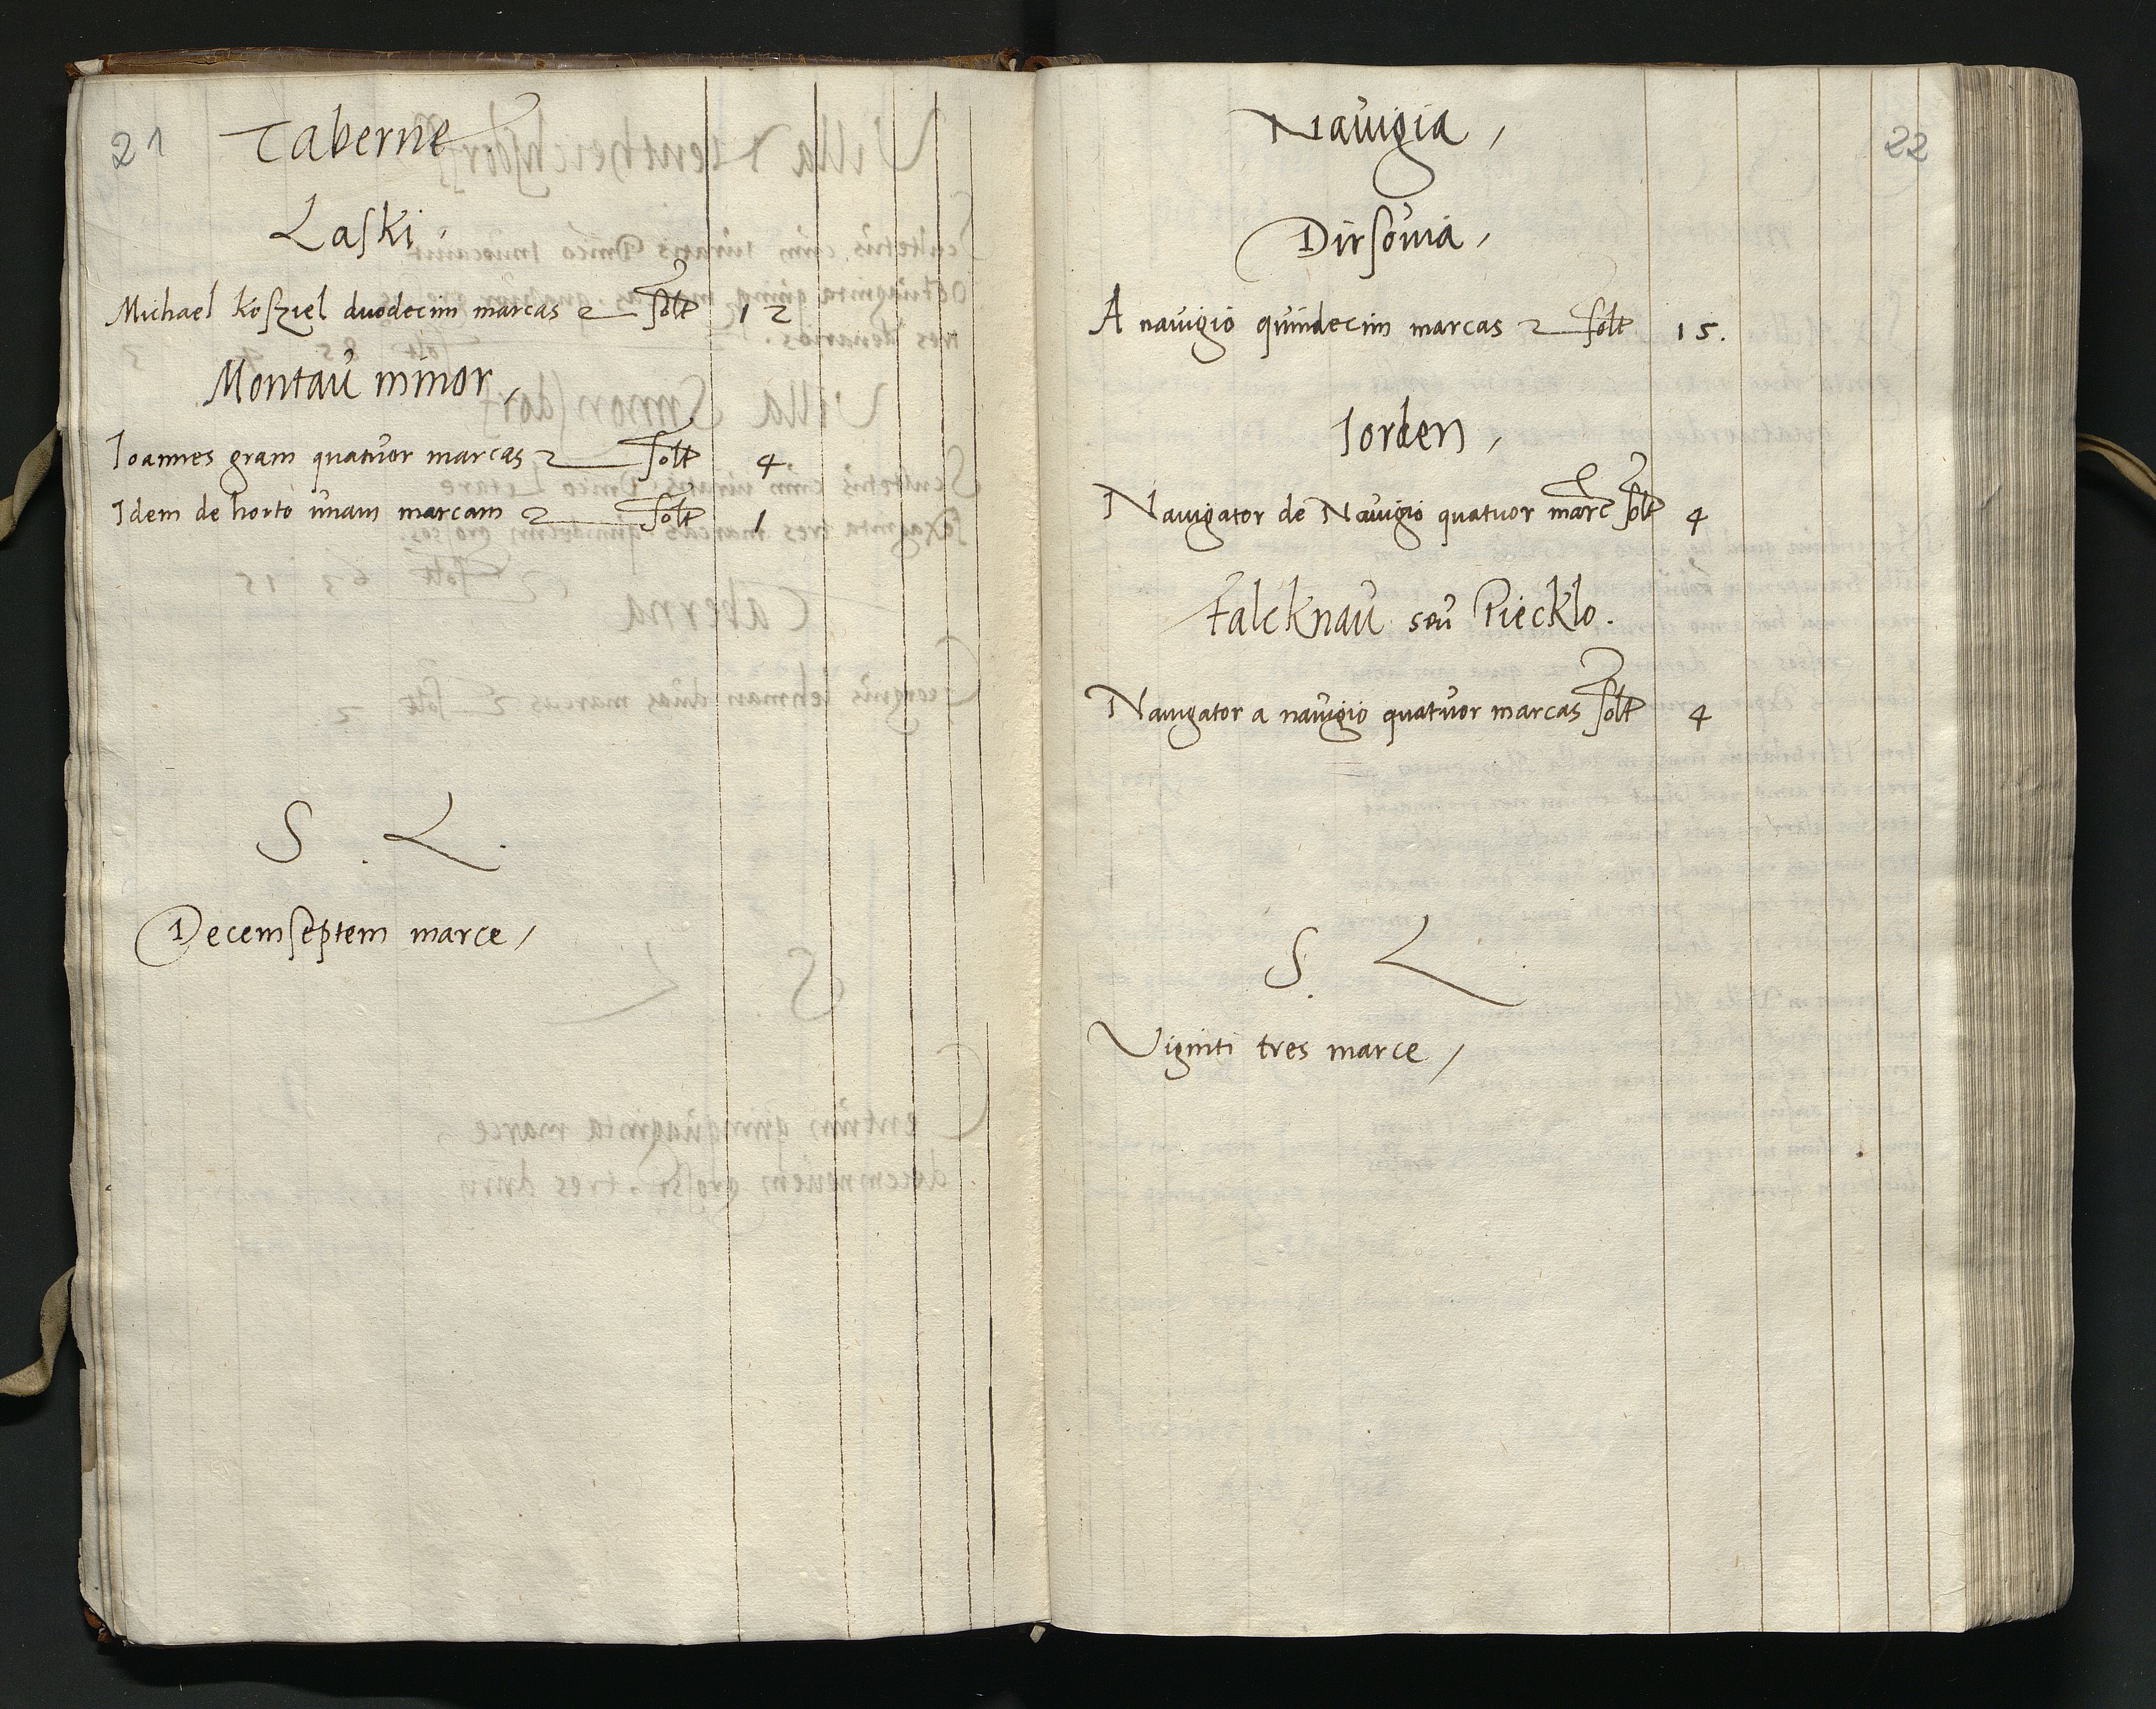 21
Taberne
Laski,
Michael Koſziel duodecim marcas ſolt 12
Montaŭ minor,
Ioannes gram quatŭor marcas ſolt 4.
Idem de horto ŭnam marcam ſolt 1
S. L.
Decemſeptem marce,
22
Naŭigia,
Dirſoŭia,
A naŭigio qŭindecim marcas ſolt 15.
Iorden,
Naŭigator de Naŭigio quatŭor marc ſolt 4
Falcknaŭ seŭ Piecklo.
Naŭigator a naŭigio quatŭor marcas ſolt 4
S. L.
Viginti tres marce,